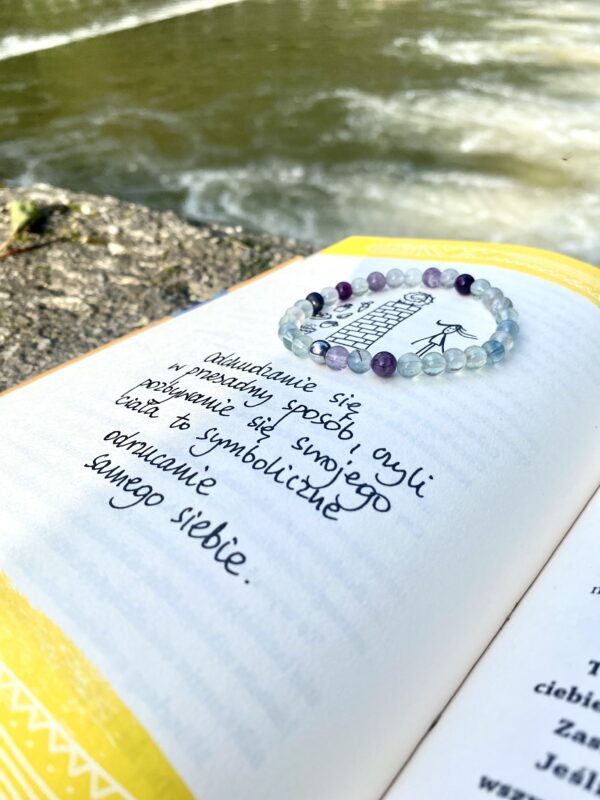 Odchudzanie się
w przesadny sposób, czyli
pozbywanie się swojego
ciała to symboliczne
odrzucanie
samego siebie.
ciebie
Zas
Jeśli